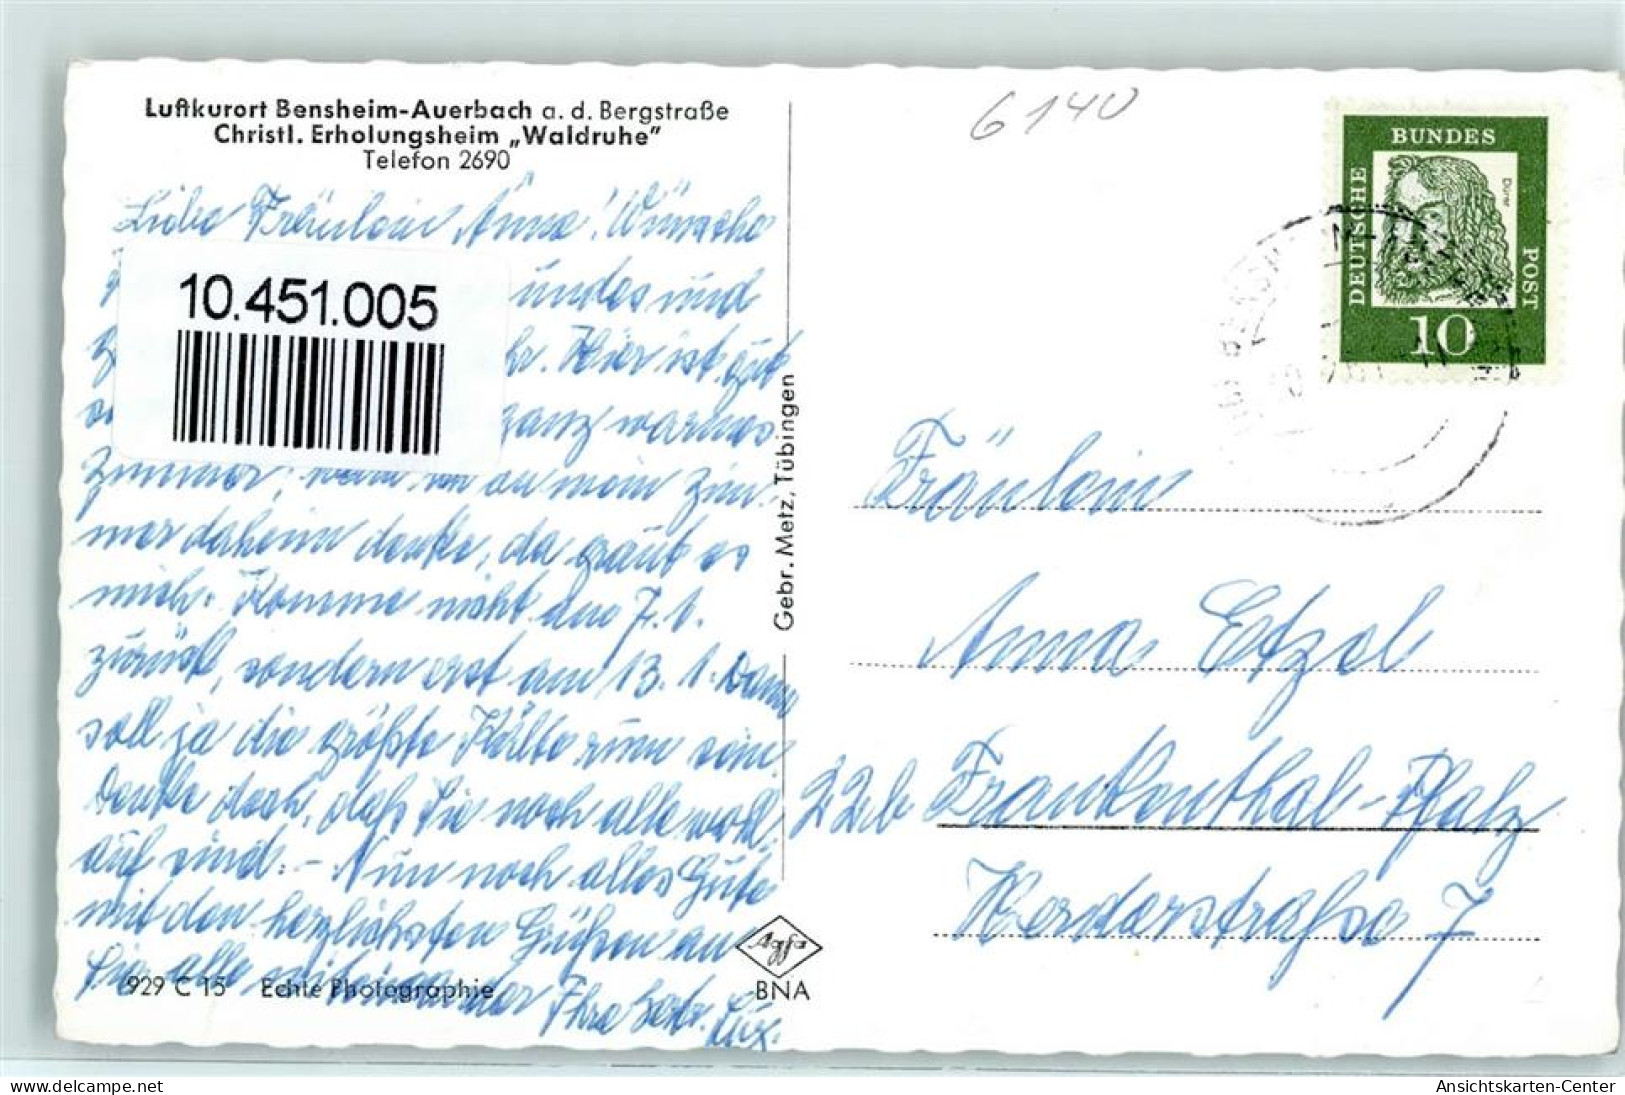 Luftkurort Bensheim-Auerbach a. d. Bergstraße
Christl. Erholungsheim „Waldruhe"
Telefon 2690
Liebe Fräulein Anna! Wünsche
undes und
hr. Hier ist gut
ganz warmes
Zimmer; wenn an mein Zim-
mer daheim denke, da graut es
mich. Komme nicht am 7. 1.
zurück, sondern erst am 13. 1. Dann
soll ja die größte Kälte rum sein.
Denke doch, daß Sie noch alle wohl
auf sind. – Nun noch alles Gute
mit den herzlichsten Grüßen an
Sie alle miteinander Ihre
10.451.005
929 C 15 Echte Photographie
Gebr. Metz, Tübingen
Agfa
BNA
6140
DEUTSCHE BUNDES POST
Dürer
10
Fräulein
Anna Etzel
22b Frankenthal-Pfalz
Herderstraße 7
delcampe.net
Ansichtskarten-Center